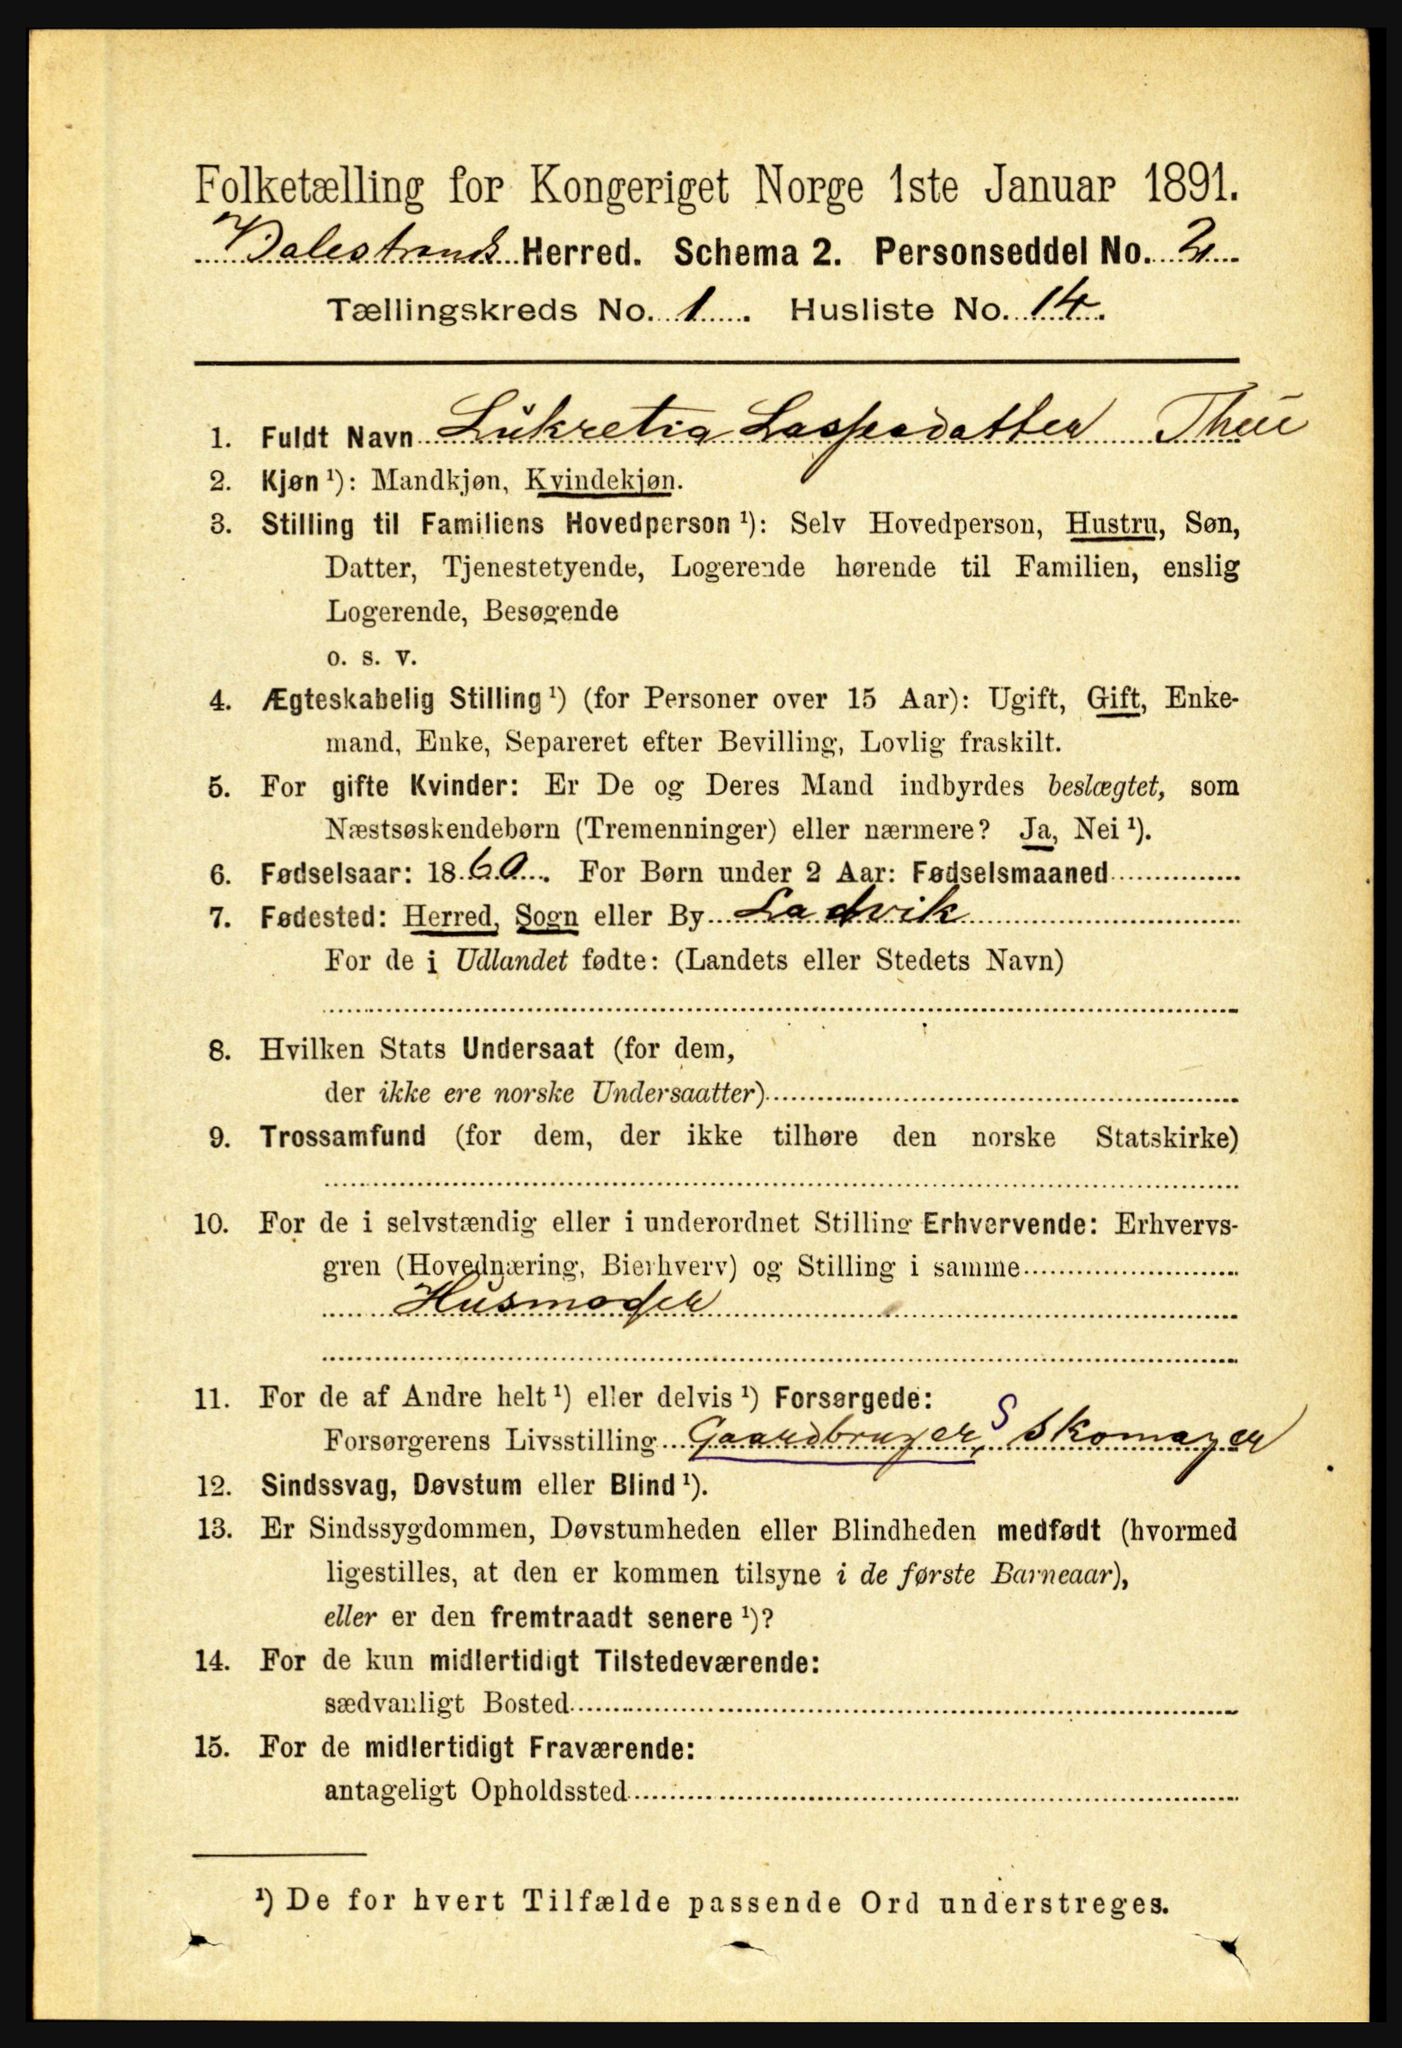 Folketælling for Kongeriget Norge 1ste Januar 1891.
Balestrand Herred. Schema 2. Personseddel No. 2
Tællingskreds No. 1. Husliste No. 14.
1. Fuldt Navn Lukretia Lassesdatter Thue
2. Kjøn ¹): Mandkjøn, Kvindekjøn.
3. Stilling til Familiens Hovedperson ¹): Selv Hovedperson, Hustru, Søn,
Datter, Tjenestetyende, Logerende hørende til Familien, enslig
Logerende, Besøgende
o. s. v.
4. Ægteskabelig Stilling ¹) (for Personer over 15 Aar): Ugift, Gift, Enke-
mand, Enke, Separeret efter Bevilling, Lovlig fraskilt.
5. For gifte Kvinder: Er De og Deres Mand indbyrdes beslægtet, som
Næstsøskendebørn (Tremenninger) eller nærmere? Ja, Nei ¹).
6. Fødselsaar: 1860. For Børn under 2 Aar: Fødselsmaaned
7. Fødested: Herred, Sogn eller By Ladvik
For de i Udlandet fødte: (Landets eller Stedets Navn)
8. Hvilken Stats Undersaat (for dem,
der ikke ere norske Undersaatter)
9. Trossamfund (for dem, der ikke tilhøre den norske Statskirke)
10. For de i selvstændig eller i underordnet Stilling Erhvervende: Erhvervs-
gren (Hovednæring, Bierhverv) og Stilling i samme
Husmoder
11. For de af Andre helt ¹) eller delvis ¹) Forsørgede:
Forsørgerens Livsstilling Gaardbruger, S Skomager
12. Sindssvag, Døvstum eller Blind ¹).
13. Er Sindssygdommen, Døvstumheden eller Blindheden medfødt (hvormed
ligestilles, at den er kommen tilsyne i de første Barneaar),
eller er den fremtraadt senere ¹)?
14. For de kun midlertidigt Tilstedeværende:
sædvanligt Bosted
15. For de midlertidigt Fraværende:
antageligt Opholdssted
¹) De for hvert Tilfælde passende Ord understreges.